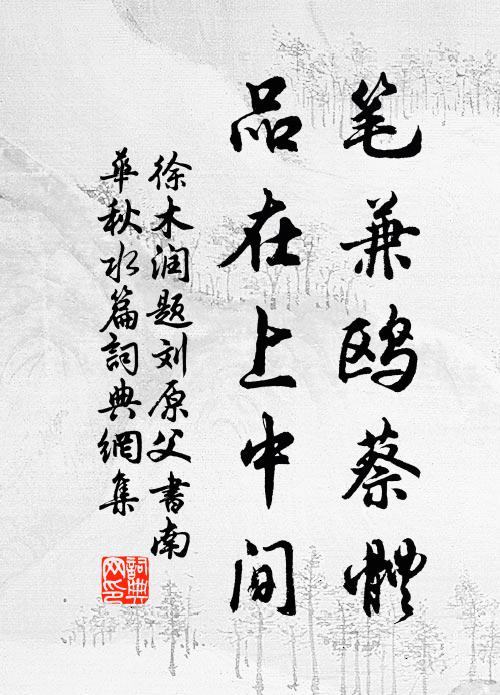 笔兼鸥蔡體
品在上中间
徐木润题刘原父書南
華秋水篇詞典網集
詞典
网印